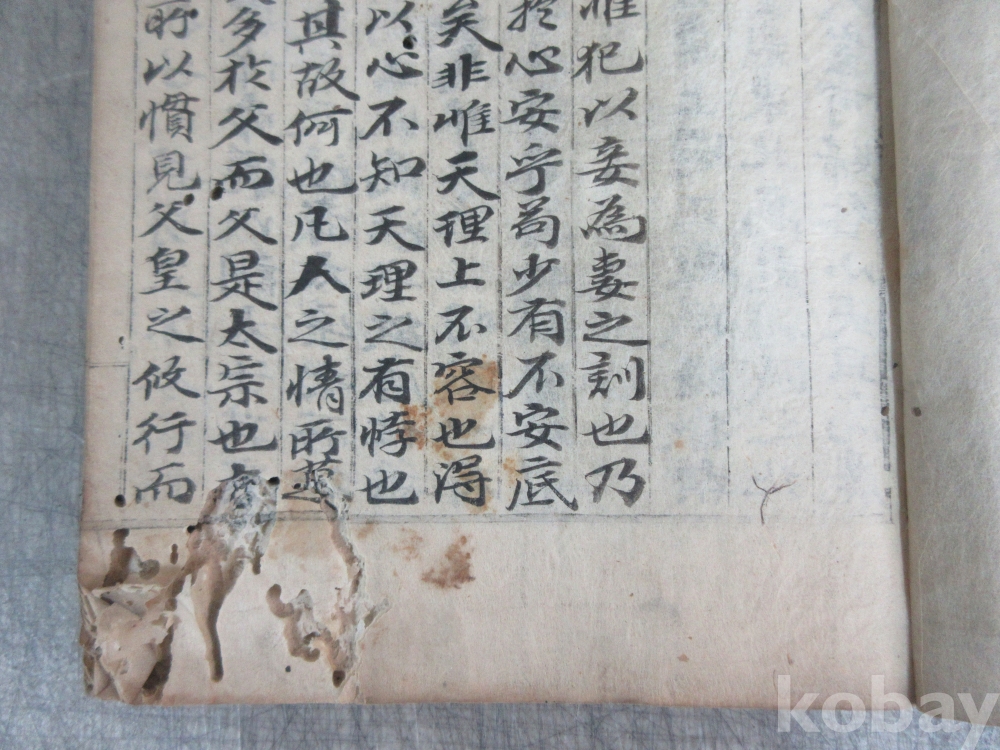 犯以妾為妻之刻也乃
於心安乎苟少有不安底
矣非惟天理上不容也得
以心不知天理之有悖也
其故何也凡人之情所
多於父而父是太宗也
所以慣見父皇之攸行而
kobay